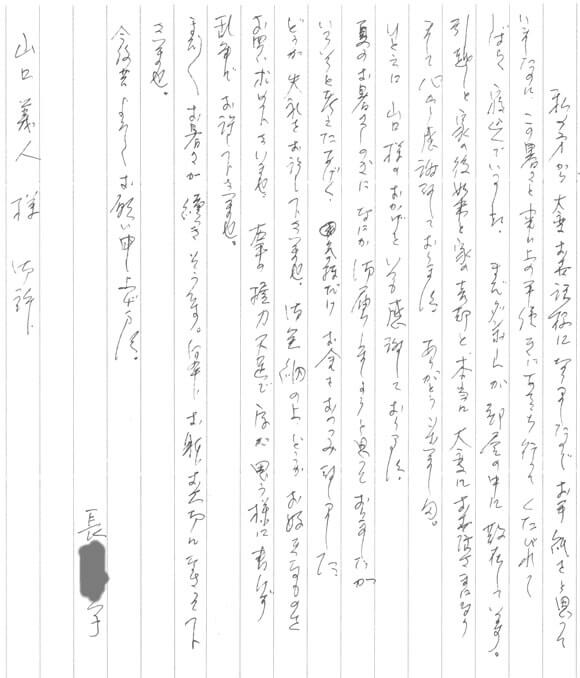 私の方から大変お世話様になりましたのでお手紙をと思って
いましたのにこの暑さと 上の手続きにあちら行ってくたびれて
ばかり 寝 でいました。まだダンボールが部屋の中に散在しています。
引越しと家の後始末と家の売却と本当に大変にお世話さまになり
そして心から感謝致しております。ありがとうございます。
ひとえに山口様のおかげといつも感謝しております。
夏のお暑さしのぎになにかお届けしましょうと思っておりますたが
いろいろと考えたあげく、 お金をおつつみ致しました
どうか失礼をお許し下さいませ。御笑納の上、どうかお好きなものを
お買い求め下さいませ。 の握力不足で字が思う様に書けず
乱筆でお許し下さいませ。
まだまだお暑さが続きそうです。何卒、お身お大切になさって下
さいませ。
今後共よろしくお願い申し上げます。
長 子
山口義人様 御許